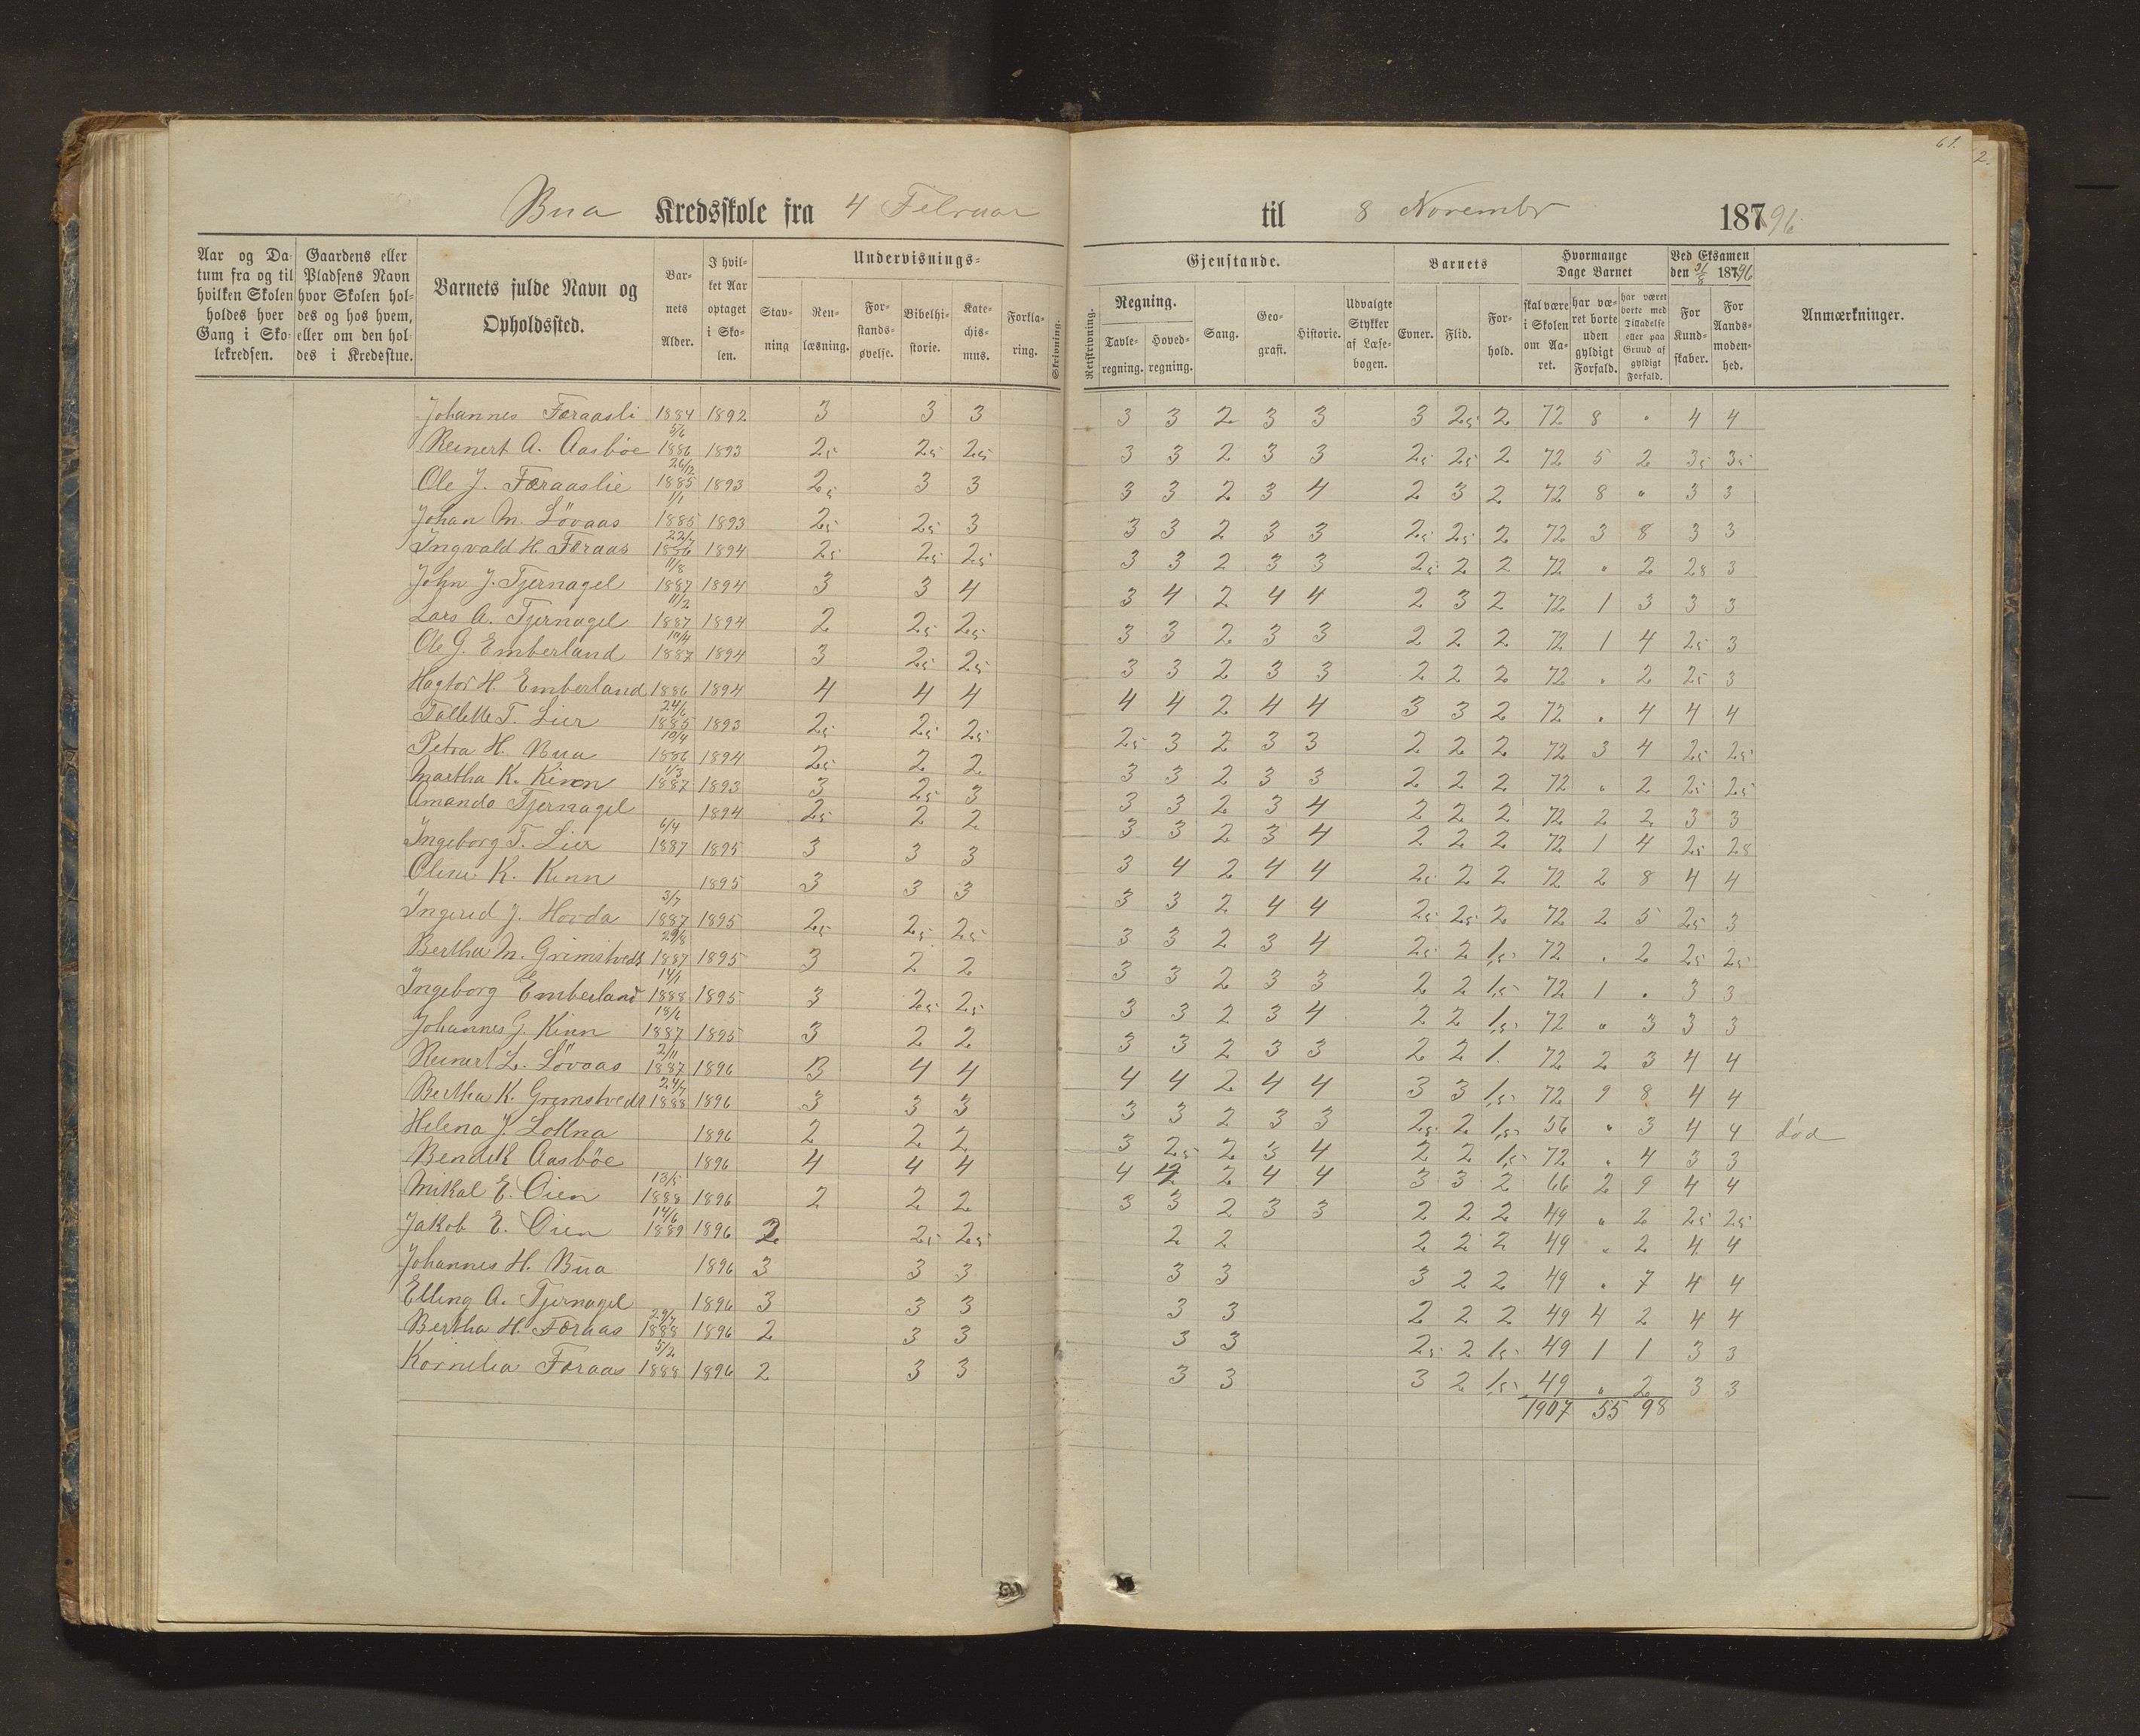 61.
2.
Bua Kredsskole fra 4 Februar til 8 Novembr 18796
Aar og Datum fra og til hvilken Skolen holdes hver Gang i Skolekredsen.
Gaardens eller Pladsens Navn hvor Skolen holdes og hos hvem, eller om den holdes i Kredsstue.
Barnets fulde Navn og Opholdssted.
Barnets Alder.
I hvilket Aar optaget i Skolen.
Undervisnings-
Gjenstande.
Stavning
Renlæsning.
Forstandsøvelse.
Bibelhistorie.
Katechismus.
Forklaring.
Skrivning.
Retskrivning.
Regning.
Tavleregning.
Hovedregning.
Sang.
Geografi.
Historie.
Udvalgte Stykker af Læsebogen.
Barnets
Evner.
Flid.
Forhold.
Hvormange Dage Barnet
skal være i Skolen om Aaret.
har været borte uden gyldigt Forfald.
har været borte med Tilladelse eller paa Grund af gyldigt Forfald.
Ved Eksamen den 31/8 18796
For Kundskaber.
For Aandsmodenhed.
Anmærkninger.
Johannes Føraasli 1884 1892 3 3 3 3 3 2 3 3 3 25 2 72 8 " 4 4
Reinert A. Aasbøe 5/6 1886 1893 25 25 25 3 3 2 3 3 25 25 2 72 5 2 35 35
Ole J. Føraaslie 26/12 1885 1893 25 3 3 3 3 2 3 4 2 3 2 72 8 " 3 3
Johan M. Lövaas 1/1 1885 1893 25 25 3 3 3 2 3 3 25 25 2 72 3 8 3 3
Ingvald H. Føraas 22/7 1886 1894 25 25 25 3 3 2 3 3 25 2 2 72 " 2 28 3
John J. Tjernagel 11/8 1887 1894 3 3 4 3 4 2 4 4 2 3 2 72 1 3 3 3
Lars A. Tjernagel 11/2 1887 1894 2 25 25 3 3 2 3 3 2 2 2 72 1 4 25 3
Ole G. Emberland 10/4 1887 1894 3 25 25 3 3 2 3 3 2 2 2 72 " 2 25 3
Hagtor H. Emberland 1886 1894 4 4 4 4 4 2 4 4 3 3 2 72 " 4 4 4
Tallette T. Lier 24/6 1885 1893 25 25 25 25 3 2 3 3 2 2 2 72 3 4 25 25
Petra H. Bua 10/4 1886 1894 25 2 2 3 3 2 3 3 2 2 2 72 " 2 25 25
Martha K. Kinn 1/3 1887 1893 3 25 3 3 3 2 3 4 2 2 2 72 2 2 3 3
Amanda Tjernagel 1894 25 2 2 3 3 2 3 4 2 2 2 72 1 4 25 28
Ingeborg T. Lier 6/4 1887 1895 3 3 3 3 4 2 4 4 25 2 2 72 2 8 4 4
Oline K. Kinn 1895 3 3 3 3 3 2 4 4 25 25 2 72 2 5 25 3
Ingerid J. Hovda 3/7 1887 1895 25 25 25 3 3 2 3 4 25 2 15 72 " 2 25 25
Bertha M. Grimstvedt 29/8 1887 1895 3 2 2 3 3 2 3 3 2 2 15 72 1 " 3 3
Ingeborg Emberland 14/1 1888 1895 3 25 25 3 3 2 3 4 2 2 15 72 " 3 3 3
Johannes G. Kinn 18/6 1887 1895 3 2 2 3 3 2 3 3 2 2 1. 72 2 3 4 4
Reinert L. Lövaas 2/11 1887 1896 3 4 4 4 4 2 4 4 3 3 15 72 9 8 4 4
Bertha K. Grimstvedt 24/7 1888 1896 3 3 3 3 3 2 3 3 25 2 15 56 " 3 4 4 död
Helena J. Lokna 1896 2 2 2 3 25 2 3 4 2 2 15 72 " 4 3 3
Bendik Aasbøe 1896 4 4 4 4 4 2 4 4 3 3 2 66 2 9 4 4
Mikal E. Øien 13/5 1888 1896 2 2 2 3 3 2 3 3 2 2 2 49 " 2 25 25
Jakob E. Øien 14/6 1889 1896 2 25 25 2 2 2 2 2 49 " 2 4 4
Johannes H. Bua 1896 3 3 3 3 3 3 2 2 49 " 7 4 4
Elling A. Tjernagel 1896 3 3 3 3 3 2 2 2 49 4 2 4 4
Bertha H. Føraas 29/7 1888 1896 2 3 3 3 3 25 2 15 49 1 1 3 3
Kornelia Føraas 5/2 1888 1896 2 3 3 3 3 3 2 15 49 " 2 3 3
1907 55 98